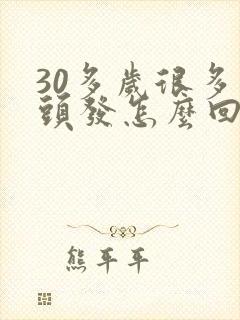 30多歲很多
頭發怎麼回
熊平平